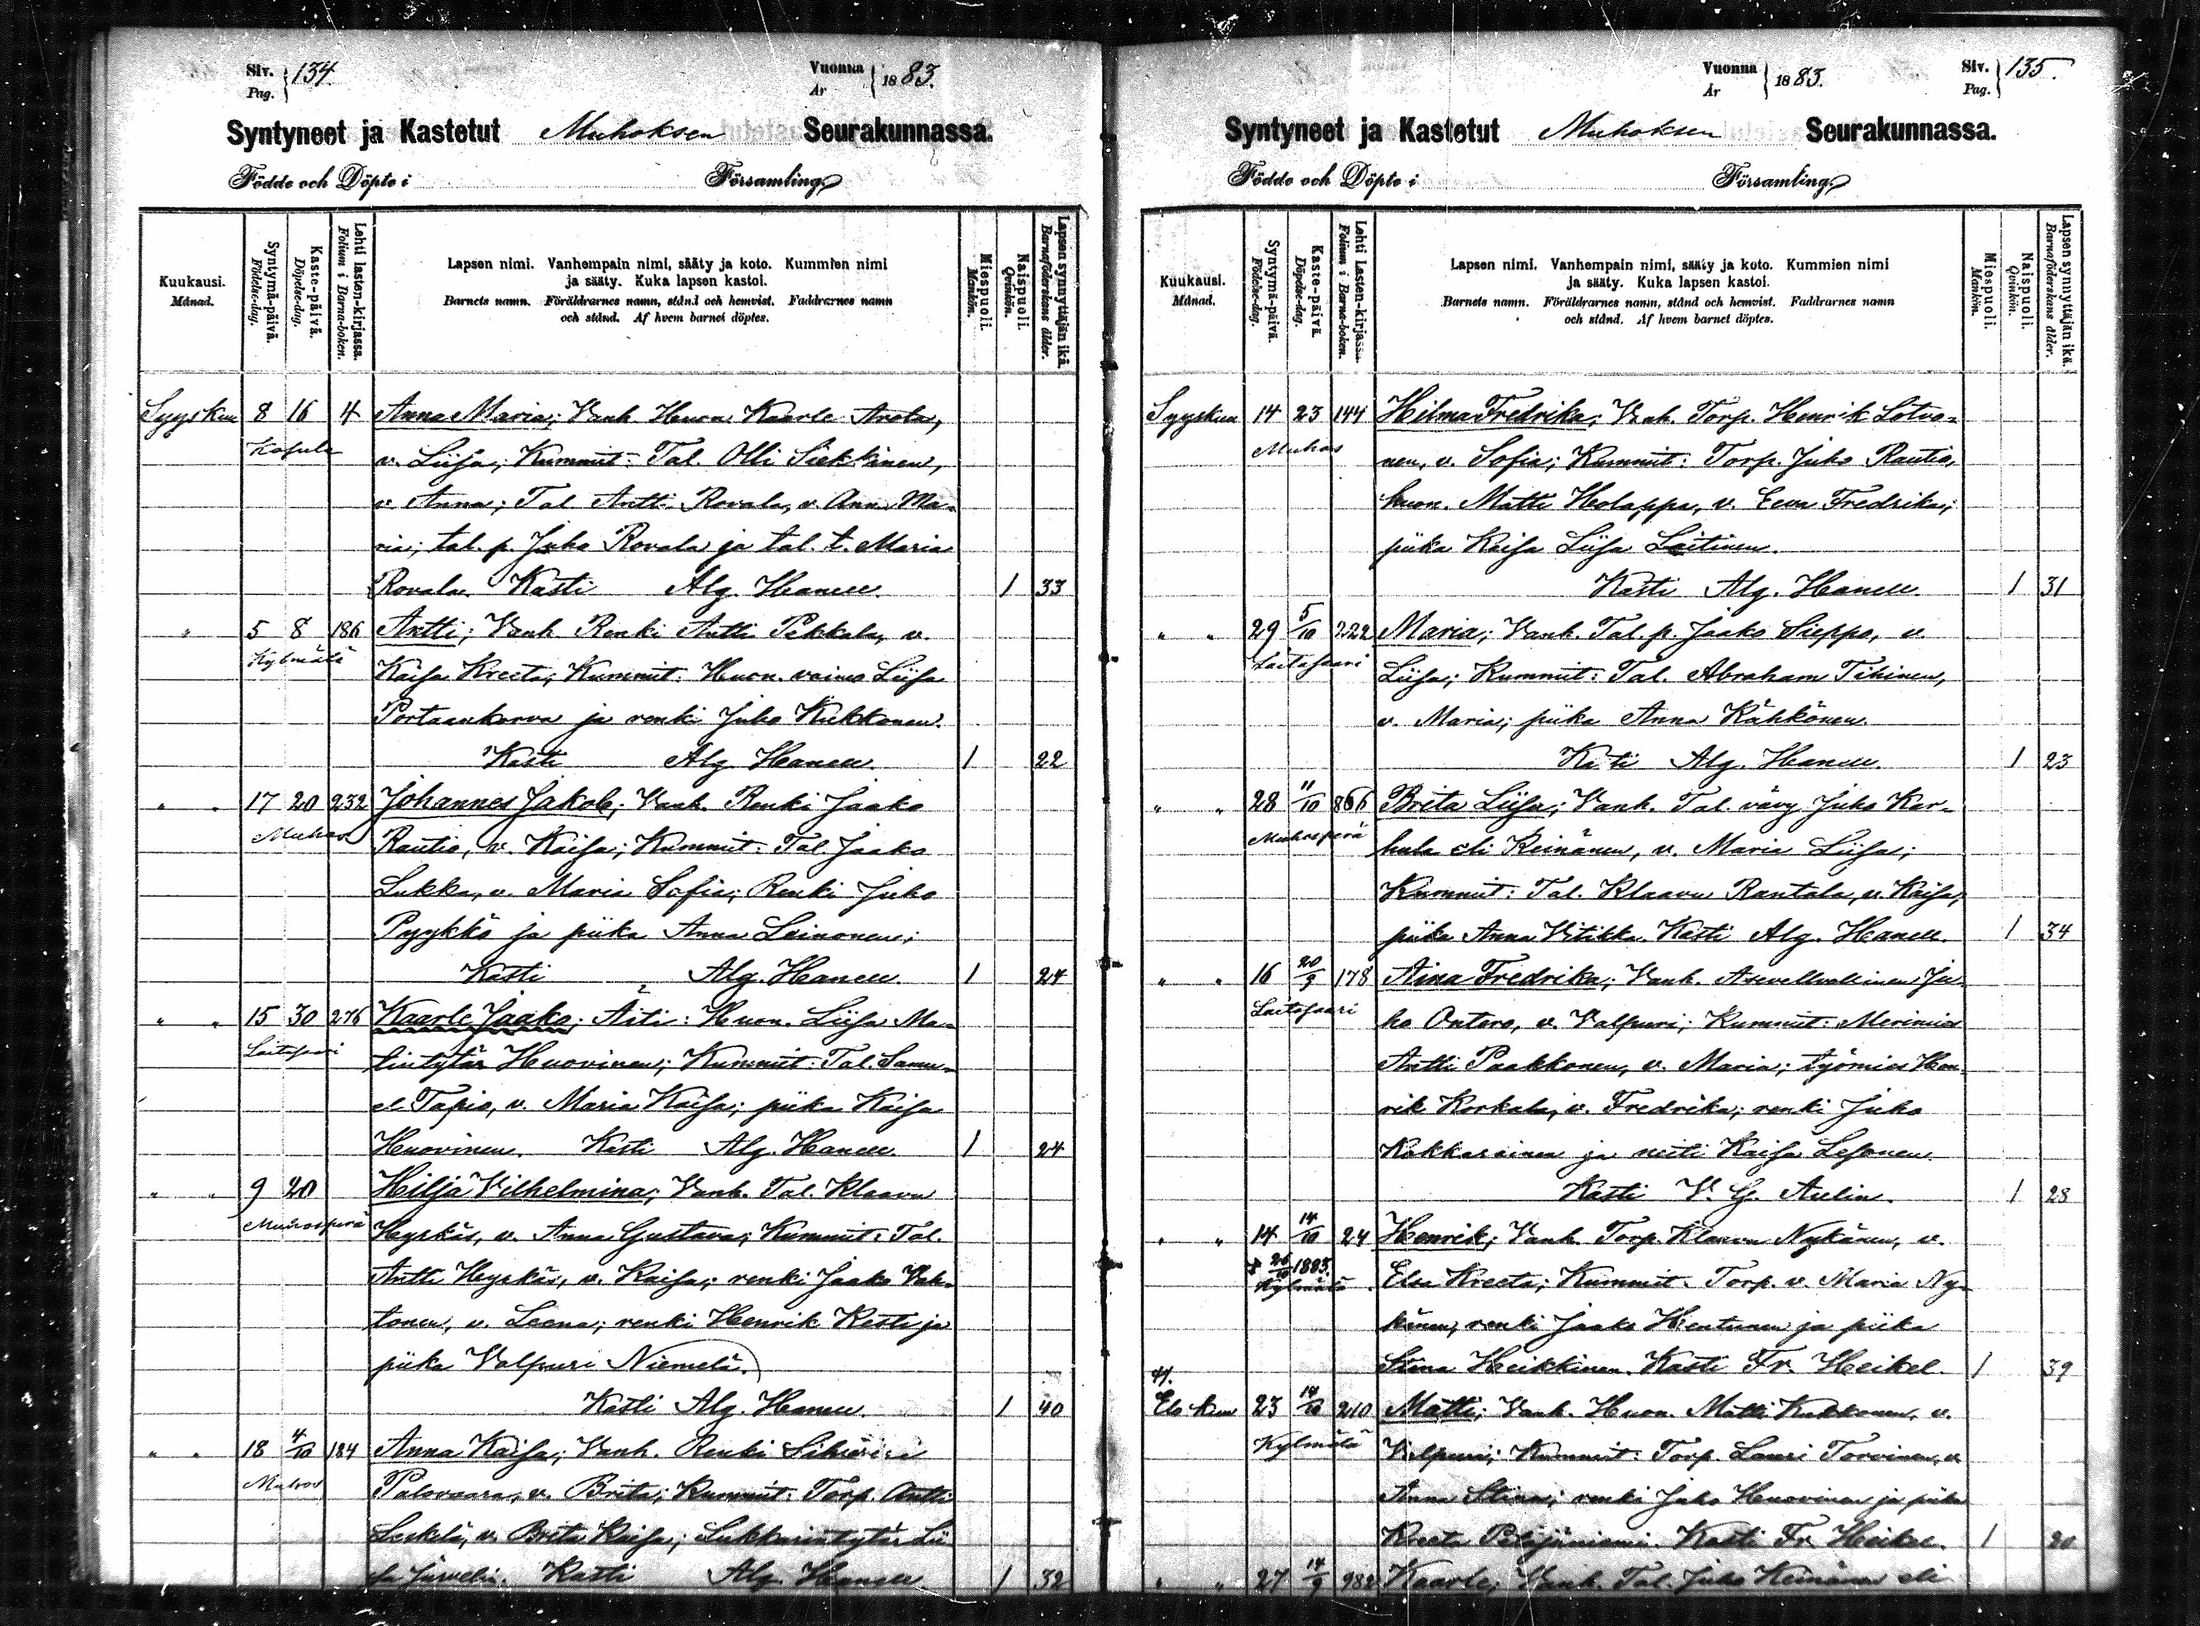 Siv. Pag. 134.
Vuonna År 1883.
Syntyneet ja Kastetut Muhoksen Seurakunnassa.
Födde och Döpte i Församling.
Kuukausi. Månad.
Syntymä-päivä. Födelse-dag.
Kaste-päivä. Döpelse-dag.
Lehti lasten-kirjassa. Folium i Barna-boken.
Lapsen nimi. Vanhempain nimi, sääty ja koto. Kummien nimi
ja sääty. Kuka lapsen kastoi.
Barnets namn. Föräldrarnes namn, stånd och hemvist. Faddrarnes namn
och stånd. Af hvem barnet döptes.
Miespuoli. Mankön.
Naispuoli. Qvinkön.
Lapsen synnyttäjän ikä. Barnaföderskans ålder.
Syyskuu 8 16 4 Anna Maria; Vanh. Huon. Kaarle Arola,
v. Liisa; Kummit: Tal. Olli Siekkinen,
v. Anna; Tal. Antti Rovala, v. Anna Ma-
ria; tal. p. Juho Rovala ja tal. t. Maria
Rovala. Kasti Alg. Hanell. 1 33
" 5 8 186 Antti; Vanh. Renki Antti Pekkala, v.
Kylmälä
Kaisa Kreeta; Kummit: Huon. vaimo Liisa
Portaankorva ja renki Juho Kukkonen.
Kasti Alg. Hanell. 1 22
" " 17 20 232 Johannes Jakob; Vanh. Renki Jaako
Muhos
Rautio, v. Kaisa; Kummit: Tal. Jaako
Lukka, v. Maria Sofia; Renki Juho
Pyykkö ja piika Anna Leinonen;
Kasti Alg. Hanell. 1 24
" " 15 30 276 Kaarle Jaako; Äiti: Huon. Liisa Ma-
Laitasaari
tintytär Huovinen; Kummit: Tal. Samu-
el Tapio, v. Maria Kaisa; piika Kaisa
Huovinen. Kasti Alg. Hanell. 1 24
" " 9 20 Hilja Vilhelmina; Vanh. Tal. Klaavu
Muhosperä
Hyrkäs, v. Anna Gustava; Kummit: Tal.
Antti Hyrkäs, v. Kaisa; renki Jaako
tonen, v. Leena; renki Henrik Kesti ja
piika Valpuri Niemelä.
Kasti Alg. Hanell. 1 40
" " 18 4/10 184 Anna Kaisa; Vanh. Renki
Muhos
Palovaara, v. Brita; Kummit: Torp. Antti
Leskelä, v. Brita Kaisa; Lukkarintytär Lii-
sa Järvelin. Kasti Alg. Hanell 1 32
Vuonna År 1883.
Siv. Pag. 135.
Syntyneet ja Kastetut Muhoksen Seurakunnassa.
Födde och Döpte i Församling.
Kuukausi. Månad.
Syntymä-päivä. Födelse-dag.
Kaste-päivä. Döpelse-dag.
Lehti Lasten-kirjassa. Folium i Barna-boken.
Lapsen nimi. Vanhempain nimi, sääty ja koto. Kummien nimi
ja sääty. Kuka lapsen kastoi.
Barnets namn. Föräldrarnes namn, stånd och hemvist. Faddrarnes namn
och stånd. Af hvem barnet döptes.
Miespuoli. Mankön.
Naispuoli. Qvinkön.
Lapsen synnyttäjän ikä. Barnaföderskans ålder.
Syyskuu 14 23 144 Hilma Fredrika; Vanh. Torp. Henrik Lotvo-
Muhos
nen, v. Sofia; Kummit: Torp. Juho Rautio,
huon. Matti Holappa, v. Eeva Fredrika;
piika Kaisa Liisa Laitinen.
Kasti Alg. Hanell. 1 31
" " 29 5/10 222 Maria; Vanh. Tal. p. Jaako Sieppo, v.
Laitasaari
Liisa; Kummit: Tal. Abraham Tihinen,
v. Maria; piika Anna Kähkönen.
Kasti Alg. Hanell. 1 23
" " 28 11/10 866 Brita Liisa; Vanh. Tal. vävy Juho Kar-
Muhosperä
hula eli Keinänen, v. Maria Liisa;
Kummit: Tal. Klaavu Rantala, v. Kaisa;
piika Anna Vitikka. Kasti Alg. Hanell. 1 34
" " 16 20/9 178 Aina Fredrika; Vanh. Asevelvollinen Ju-
Laitasaari
ho Ontero, v. Valpuri; Kummit: Merimies
Antti Paakkonen, v. Maria; työmies Hen-
rik Korkala, v. Fredrika; renki Juho
Kokkarainen ja neiti Kaisa Lesonen.
Kasti V. G. Aulin. 1 28
" " 14 14/10 24 Henrik; Vanh. Torp. Klaavu Nykänen, v.
1883.
Kylmälä
Elsa Kreeta; Kummit: Torp. v. Maria Ny-
känen, renki Jaako Hentunen ja piika
Stina Heikkinen. Kasti Fr. Heikel. 1 39
Elokuu 23 14/10 210 Matti; Vanh. Huon. Matti Kukkonen, v.
Kylmälä
Valpuri; Kummit: Torp. Lauri Torvinen, v.
Anna Stina; renki Juho Huovinen ja piika
Kreeta Kasti Fr. Heikel. 1 20
" " 27 14/9 982 Kaarle; Vanh. Tal. Juho Keinänen eli